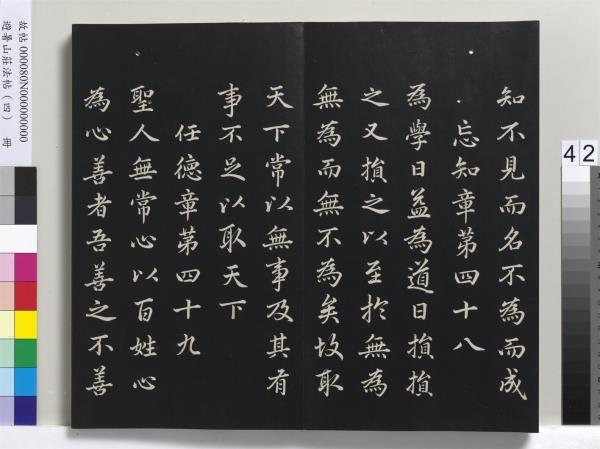 知不見而名不為而成
忘知章第四十八
為學日益為道日損損
之又損之以至於無為
無為而無不為矣故取
天下常以無事及其有
事不足以取天下
任德章第四十九
聖人無常心以百姓心
為心善者吾善之不善
故帖 000080N000000000
避暑山莊法帖(四) 冊
42